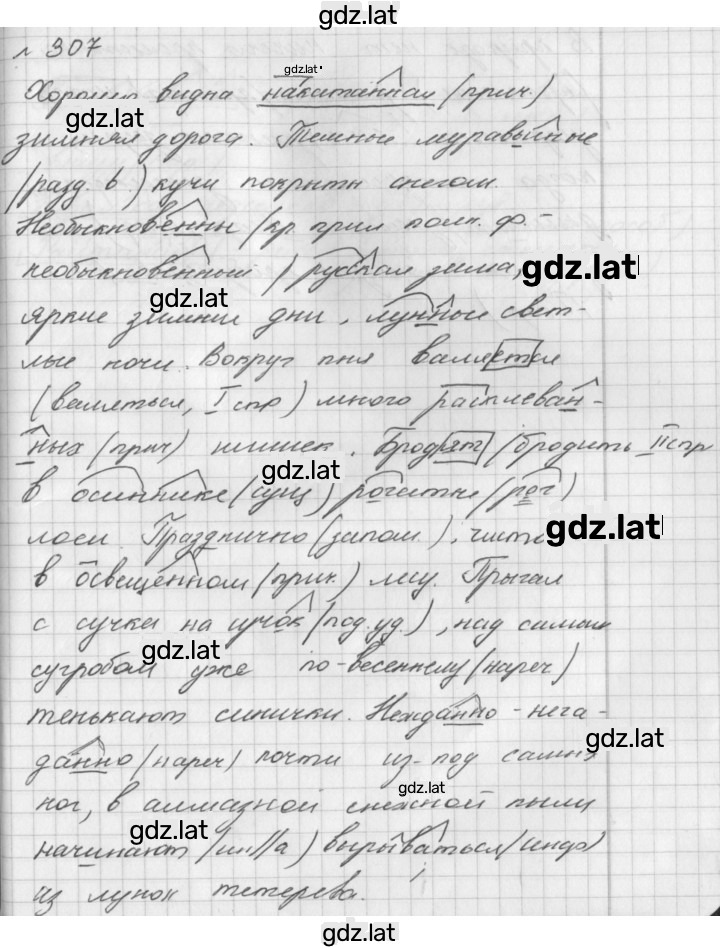 gdz.lat
№ 307
gdz.lat
Хорошо видна накатанная (прич.)
gdz.lat
зимняя дорога. Темные муравьиные
(разд. ь) кучи покрыты снегом.
Необыкновенны (кр. прил полн. ф. -
необыкновенный) русская зима, gdz.lat
gdz.lat
яркие зимние дни, лунные свет-
лые ночи. Вокруг пня валяется
(валяться, I спр) много расплеван-
ных (прич) шишек. Бродят (бродить II спр
gdz.lat
в осиннике (сущ) рогатые (рог)
лоси. Празднично (запом.), чисто gdz.lat
в освещенном (прич.) лесу. Прыгая
с сучка на сучок (под. уд.), над самым
gdz.lat
сугробом уже по-весеннему (нареч)
тенькают синички. Нежданно-нега-
gdz.lat
данно (нареч) почти из-под самых
gdz.lat
ног, в алмазной снежной пыли
gdz.lat
начинают (ин//а) вырываться
из лунок тетерева.
gdz.lat